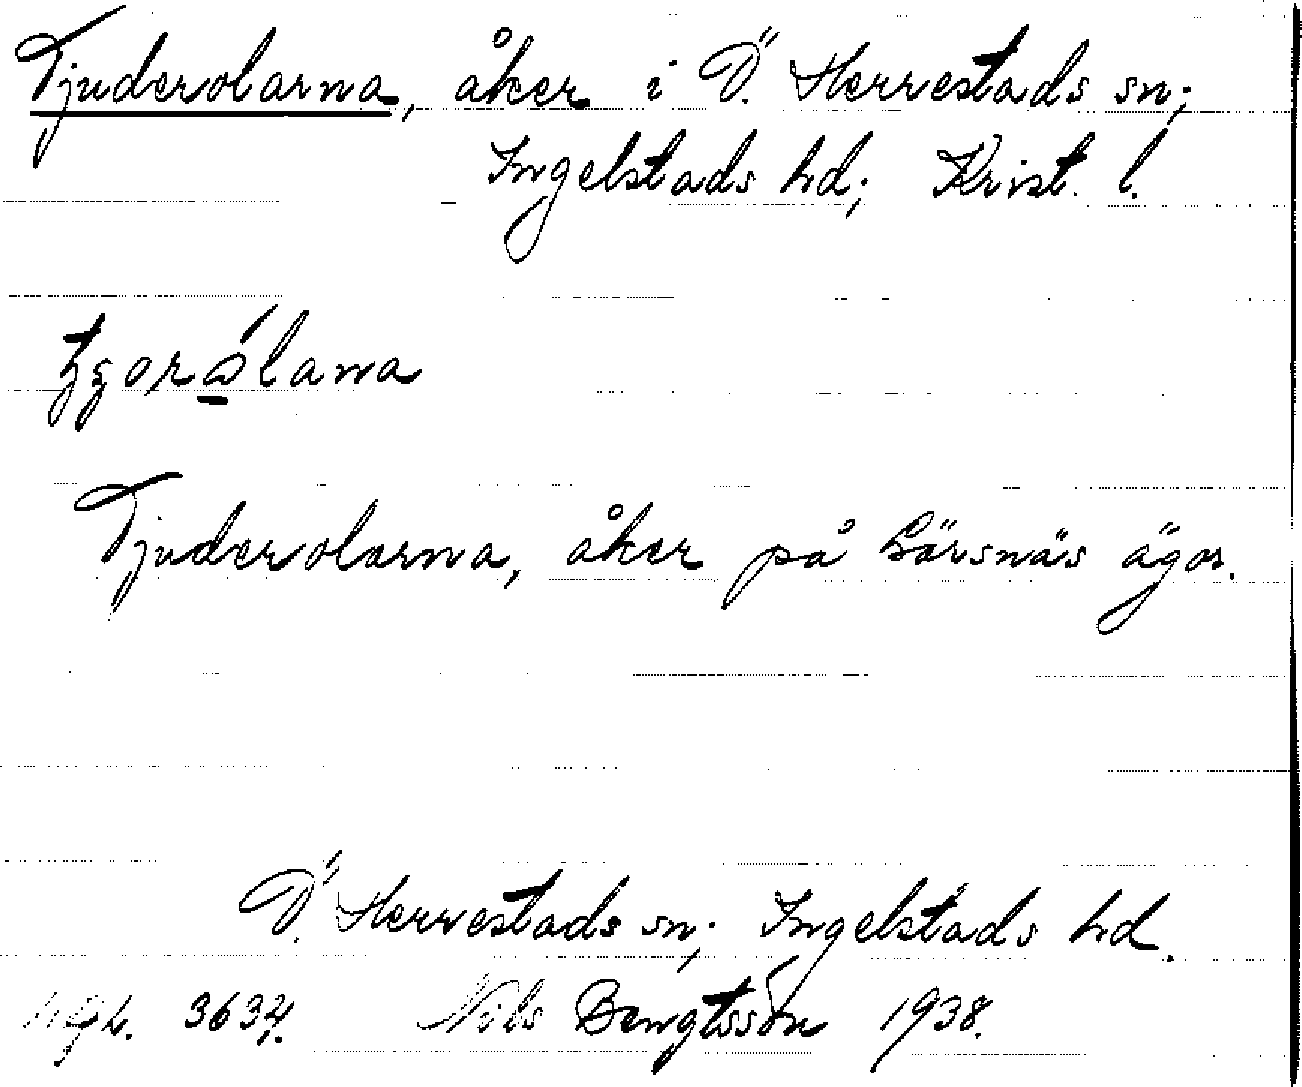 Tjudervolarna, åker i Ö. Herrestads sn;
Ingelstads hd; Krist. l.
Tjudervolarna, åker på Börsnäs ägor.
Ö. Herrestads sn; Ingelstads hd.
3634. Nils Bengtsson 1938.